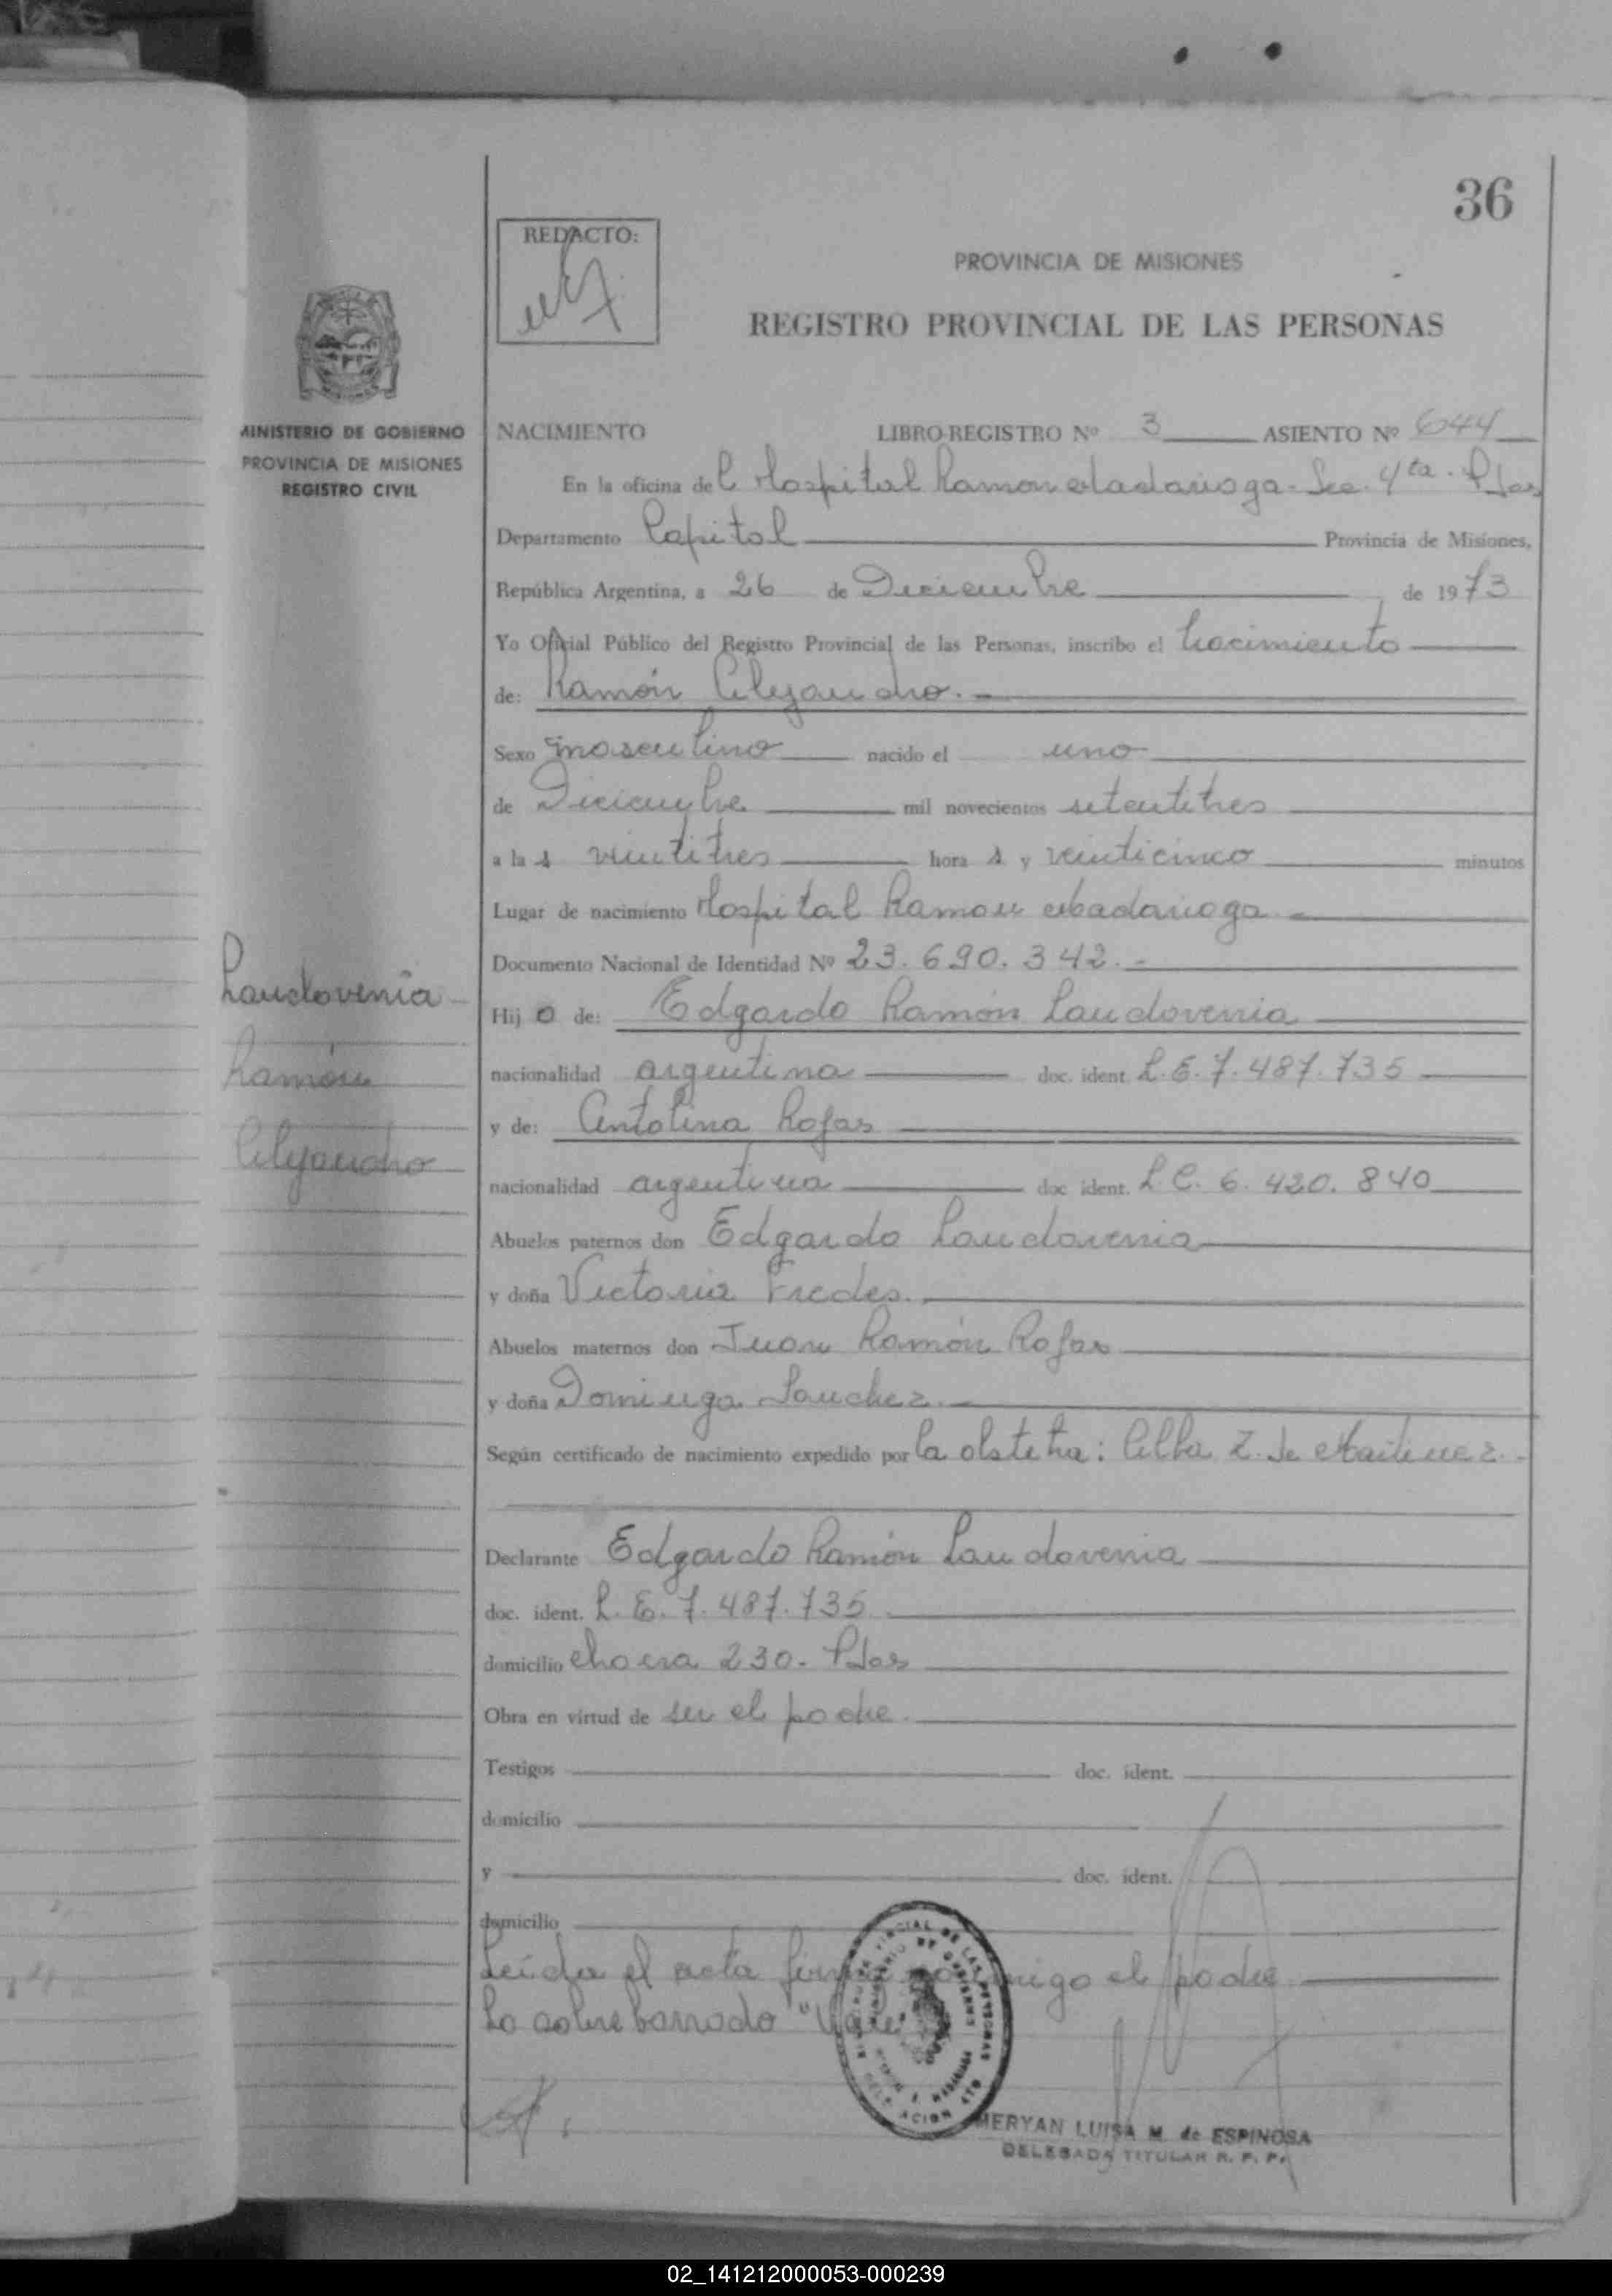 36
REDACTO:
PROVINCIA DE MISIONES
REGISTRO PROVINCIAL DE LAS PERSONAS
MINISTERIO DE GOBIERNO
PROVINCIA DE MISIONES
REGISTRO CIVIL
NACIMIENTO LIBRO-REGISTRO Nº 3 ASIENTO Nº 644
En la oficina del Hospital Ramon Madariaga - Sec. 4ta. Pdas
Departamento Capital Provincia de Misiones,
República Argentina, a 26 de Diciembre de 1973
Yo Oficial Público del Registro Provincial de las Personas, inscribo el nacimiento
de: Ramón Alejandro.-
Sexo masculino nacido el uno
de Diciembre mil novecientos setentitres
a las veintitres horas y veinticinco minutos
Lugar de nacimiento Hospital Ramon Madariaga -
Documento Nacional de Identidad Nº 23.690.342.-
Landovenia
Ramón
Alejandro
Hijo de: Edgardo Ramón Landovenia
nacionalidad argentina doc. ident. L.E. 7.487.735
y de: Antolina Rojas
nacionalidad argentina doc ident. L.C. 6.420.840
Abuelos paternos don Edgardo Landovenia
y doña Victoria Fredes.
Abuelos maternos don Juan Ramón Rojas
y doña Dominga Sanchez.-
Según certificado de nacimiento expedido por la obstetra: Alba Z. de Martinez.-
Declarante Edgardo Ramón Landovenia
doc. ident. L.E. 7.487.735
domicilio chacra 230. Pdas
Obra en virtud de ser el padre.
Testigos doc. ident.
domicilio
y doc. ident.
domicilio
Leida el acta firma conmigo el padre
Lo sobreborrado "Vale"
MERYAN LUISA M. de ESPINOSA
DELEGADA TITULAR R. P. P.
02_141212000053-000239